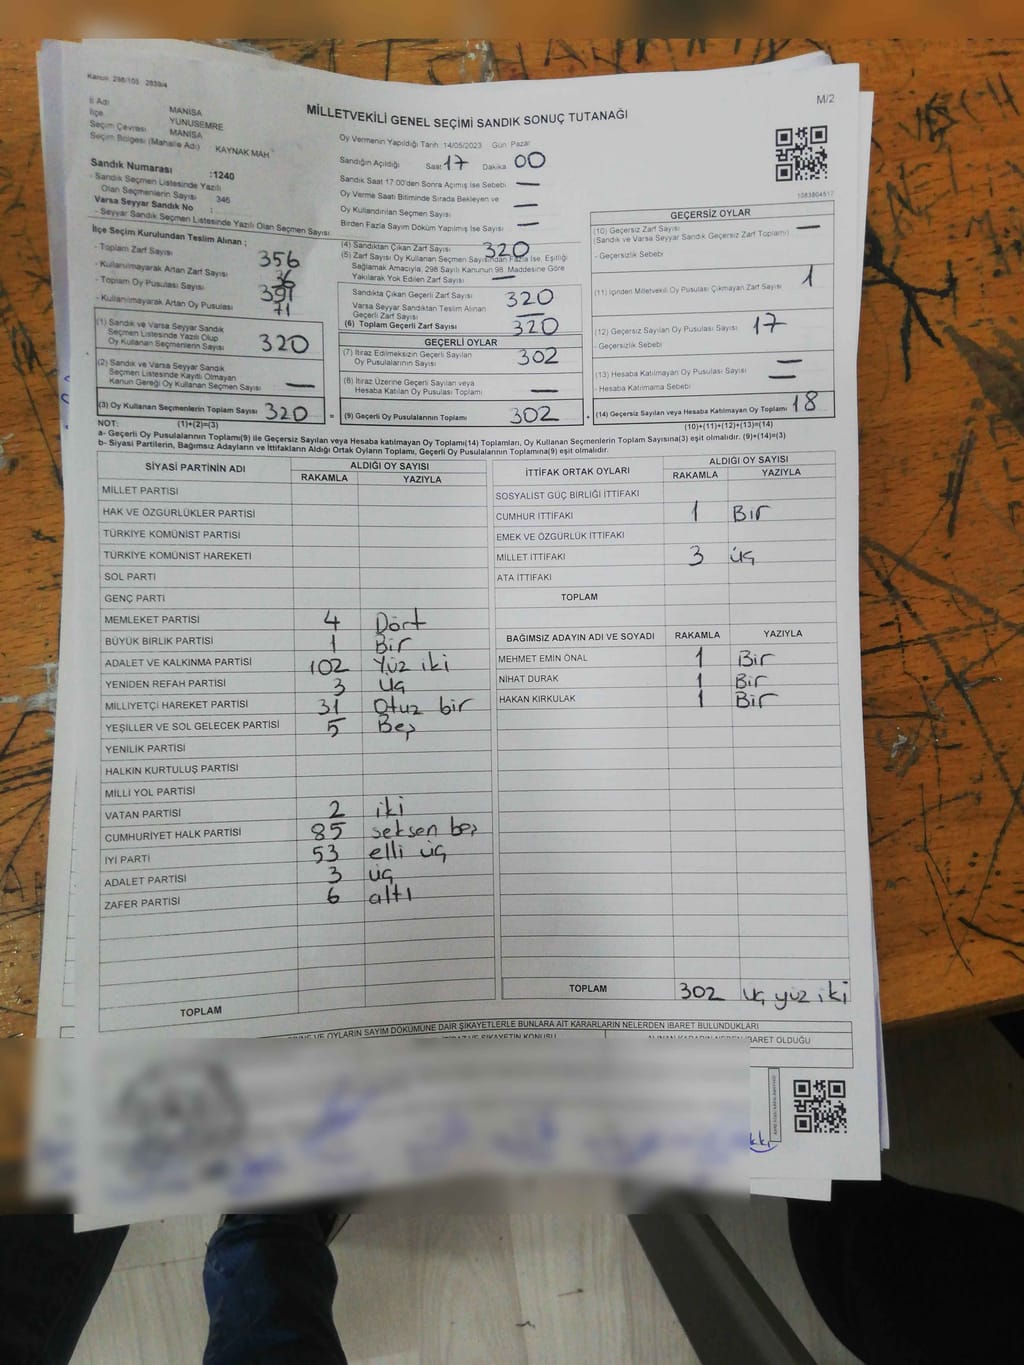 Kanun: 298/105 2839/4
M/2
MİLLETVEKİLİ GENEL SEÇİMİ SANDIK SONUÇ TUTANAĞI
İl Adı MANİSA
İlçe YUNUSEMRE
Seçim Çevresi MANİSA
Seçim Bölgesi (Mahalle Adı) KAYNAK MAH
Sandık Numarası :1240
- Sandık Seçmen Listesinde Yazılı
Olan Seçmenlerin Sayısı 346
Varsa Seyyar Sandık No :
- Seyyar Sandık Seçmen Listesinde Yazılı Olan Seçmen Sayısı:
Oy Vermenin Yapıldığı Tarih 14/05/2023 Gün Pazar
Sandığın Açıldığı Saat 17 Dakika 00
Sandık Saat 17:00'den Sonra Açılmış İse Sebebi —
Oy Verme Saati Bitiminde Sırada Bekleyen ve
Oy Kullandırılan Seçmen Sayısı —
Birden Fazla Sayım Döküm Yapılmış İse Sayısı —
1083804517
İlçe Seçim Kurulundan Teslim Alınan ;
- Toplam Zarf Sayısı 356
- Kullanılmayarak Artan Zarf Sayısı 36
- Toplam Oy Pusulası Sayısı 391
- Kullanılmayarak Artan Oy Pusulası 71
(1) Sandık ve Varsa Seyyar Sandık
Seçmen Listesinde Yazılı Olup
Oy Kullanan Seçmenlerin Sayısı 320
(2) Sandık ve Varsa Seyyar Sandık
Seçmen Listesinde Kayıtlı Olmayan
Kanun Gereği Oy Kullanan Seçmen Sayısı —
(3) Oy Kullanan Seçmenlerin Toplam Sayısı 320 =
(4) Sandıktan Çıkan Zarf Sayısı 320
(5) Zarf Sayısı Oy Kullanan Seçmen Sayısından Fazla İse, Eşitliği
Sağlamak Amacıyla, 298 Sayılı Kanunun 98. Maddesine Göre
Yakılarak Yok Edilen Zarf Sayısı —
Sandıkta Çıkan Geçerli Zarf Sayısı 320
Varsa Seyyar Sandıktan Teslim Alınan
Geçerli Zarf Sayısı —
(6) Toplam Geçerli Zarf Sayısı 320
GEÇERLİ OYLAR
(7) İtiraz Edilmeksizin Geçerli Sayılan
Oy Pusulalarının Sayısı 302
(8) İtiraz Üzerine Geçerli Sayılan veya
Hesaba Katılan Oy Pusulası Toplamı —
(9) Geçerli Oy Pusulalarının Toplamı 302 +
GEÇERSİZ OYLAR
(10) Geçersiz Zarf Sayısı —
(Sandık ve Varsa Seyyar Sandık Geçersiz Zarf Toplamı)
- Geçersizlik Sebebi
(11) İçinden Milletvekili Oy Pusulası Çıkmayan Zarf Sayısı 1
(12) Geçersiz Sayılan Oy Pusulası Sayısı 17
- Geçersizlik Sebebi
(13) Hesaba Katılmayan Oy Pusulası Sayısı —
- Hesaba Katılmama Sebebi —
(14) Geçersiz Sayılan veya Hesaba Katılmayan Oy Toplamı 18
NOT: (1)+(2)=(3)
(10)+(11)+(12)+(13)=(14)
a- Geçerli Oy Pusulalarının Toplamı(9) ile Geçersiz Sayılan veya Hesaba katılmayan Oy Toplamı(14) Toplamları, Oy Kullanan Seçmenlerin Toplam Sayısına(3) eşit olmalıdır. (9)+(14)=(3)
b- Siyasi Partilerin, Bağımsız Adayların ve İttifakların Aldığı Ortak Oyların Toplamı, Geçerli Oy Pusulalarının Toplamına(9) eşit olmalıdır.
SİYASİ PARTİNİN ADI ALDIĞI OY SAYISI
RAKAMLA YAZIYLA
MİLLET PARTİSİ
HAK VE ÖZGÜRLÜKLER PARTİSİ
TÜRKİYE KOMÜNİST PARTİSİ
TÜRKİYE KOMÜNİST HAREKETİ
SOL PARTİ
GENÇ PARTİ
MEMLEKET PARTİSİ 4 Dört
BÜYÜK BİRLİK PARTİSİ 1 Bir
ADALET VE KALKINMA PARTİSİ 102 Yüz iki
YENİDEN REFAH PARTİSİ 3 Üç
MİLLİYETÇİ HAREKET PARTİSİ 31 Otuz bir
YEŞİLLER VE SOL GELECEK PARTİSİ 5 Beş
YENİLİK PARTİSİ
HALKIN KURTULUŞ PARTİSİ
MİLLİ YOL PARTİSİ
VATAN PARTİSİ 2 iki
CUMHURİYET HALK PARTİSİ 85 seksen beş
İYİ PARTİ 53 elli üç
ADALET PARTİSİ 3 üç
ZAFER PARTİSİ 6 altı
TOPLAM
İTTİFAK ORTAK OYLARI ALDIĞI OY SAYISI
RAKAMLA YAZIYLA
SOSYALİST GÜÇ BİRLİĞİ İTTİFAKI
CUMHUR İTTİFAKI 1 Bir
EMEK VE ÖZGÜRLÜK İTTİFAKI
MİLLET İTTİFAKI 3 üç
ATA İTTİFAKI
TOPLAM
BAĞIMSIZ ADAYIN ADI VE SOYADI RAKAMLA YAZIYLA
MEHMET EMİN ÖNAL 1 Bir
NİHAT DURAK 1 Bir
HAKAN KIRKULAK 1 Bir
TOPLAM 302 üç yüz iki
VE OYLARIN SAYIM DÖKÜMÜNE DAİR ŞİKAYETLERLE BUNLARA AİT KARARLARIN NELERDEN İBARET BULUNDUKLARI